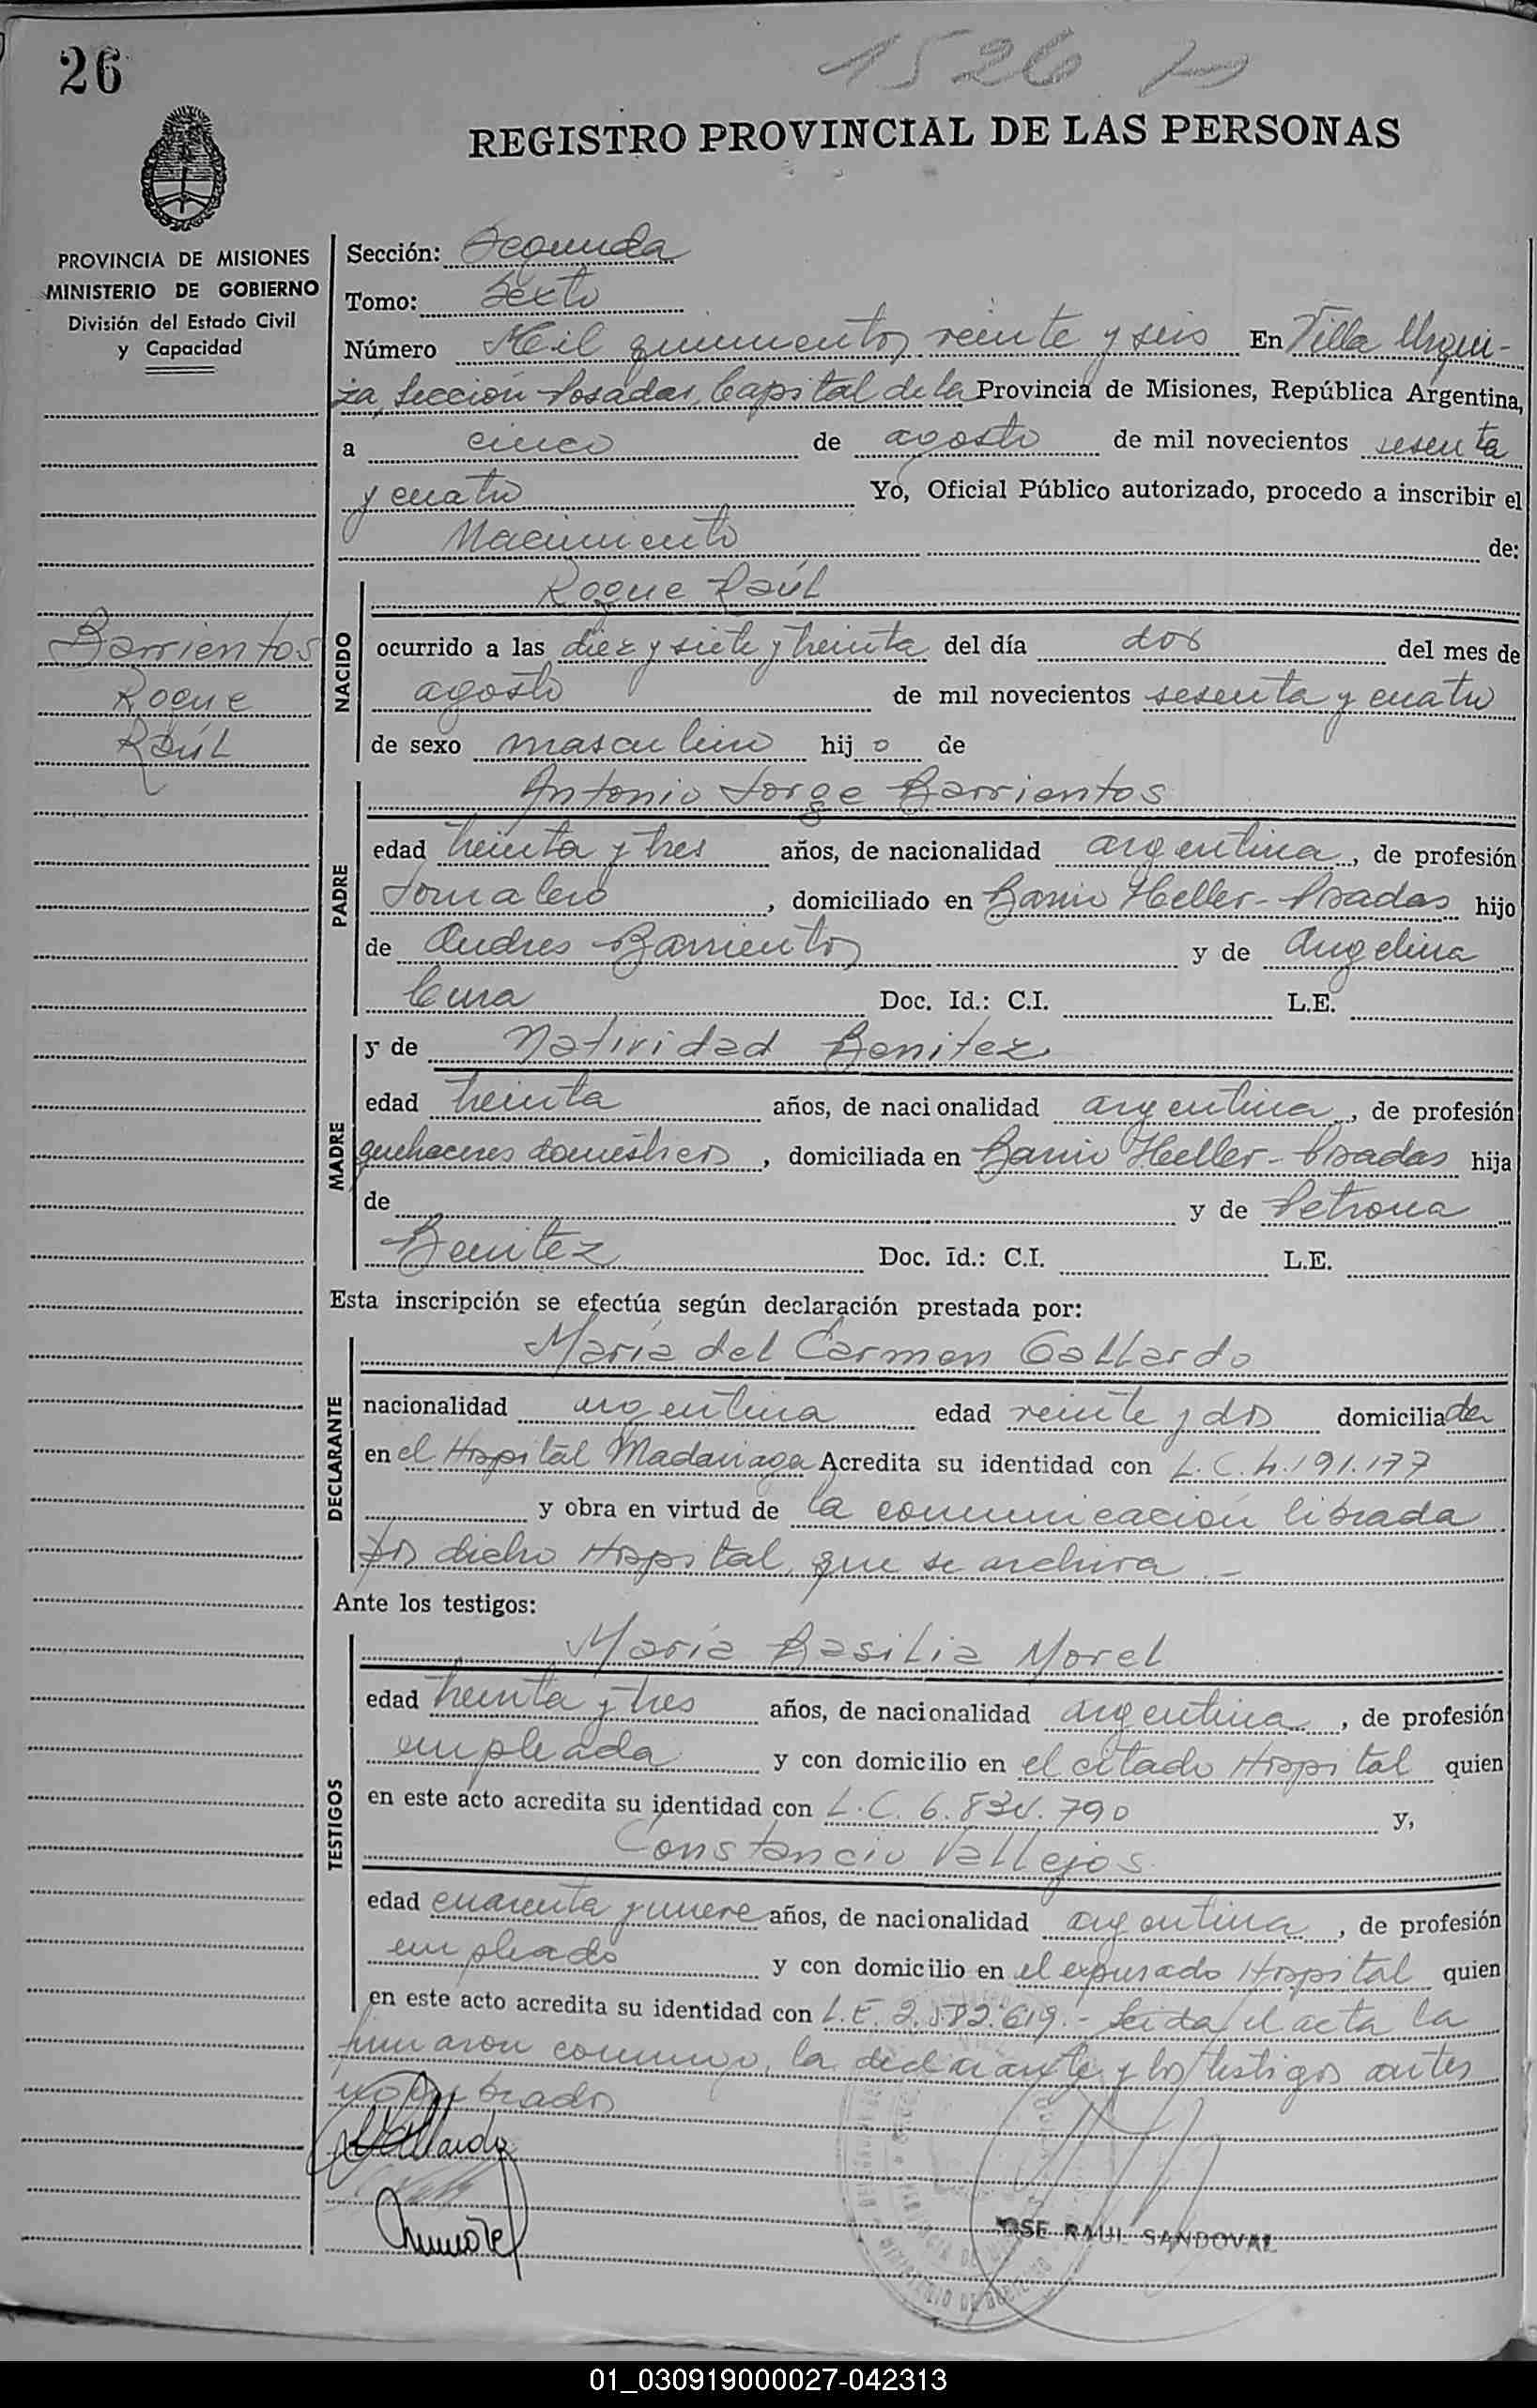 26
1526
REGISTRO PROVINCIAL DE LAS PERSONAS
PROVINCIA DE MISIONES
MINISTERIO DE GOBIERNO
División del Estado Civil
y Capacidad
Barrientos
Roque
Raúl
Sección: Segunda
Tomo: Sexto
Número Mil quinientos veinte y seis En Villa Urqui-
za, Sección Posadas, Capital de la Provincia de Misiones, República Argentina,
a cinco de agosto de mil novecientos sesenta
y cuatro Yo, Oficial Público autorizado, procedo a inscribir el
Nacimiento de:
NACIDO
Roque Raúl
ocurrido a las diez y siete y treinta del día dos del mes de
agosto de mil novecientos sesenta y cuatro
de sexo masculino hijo de
PADRE
Antonio Jorge Barrientos
edad treinta y tres años, de nacionalidad argentina, de profesión
Jornalero, domiciliado en Barrio Heller - Posadas hijo
de Andres Barrientos y de Angelina
Doc. Id.: C.I. L.E.
MADRE
y de Natividad Benitez
edad treinta años, de nacionalidad argentina, de profesión
quehaceres domésticos, domiciliada en Barrio Heller - Posadas hija
de y de Petrona
Benitez Doc. Id.: C.I. L.E.
Esta inscripción se efectúa según declaración prestada por:
DECLARANTE
María del Carmen Gallardo
nacionalidad argentina edad veinte y dos domiciliada
en el Hospital Madariaga Acredita su identidad con L. C. 4.191.177
y obra en virtud de la comunicación librada
por dicho Hospital, que se archiva.-
Ante los testigos:
TESTIGOS
María Basilia Morel
edad treinta y tres años, de nacionalidad argentina, de profesión
empleada y con domicilio en el citado Hospital quien
en este acto acredita su identidad con L. C. 6.834.790 y,
Constancio Vallejos
edad cuarenta y nueve años, de nacionalidad argentina, de profesión
empleado y con domicilio en el expresado Hospital quien
en este acto acredita su identidad con L.E. 2.582.619.- Leída el acta la
firmaron conmigo, la declarante y los testigos antes
nombrados
Gallardo
JOSE RAUL SANDOVAL
01_030919000027-042313